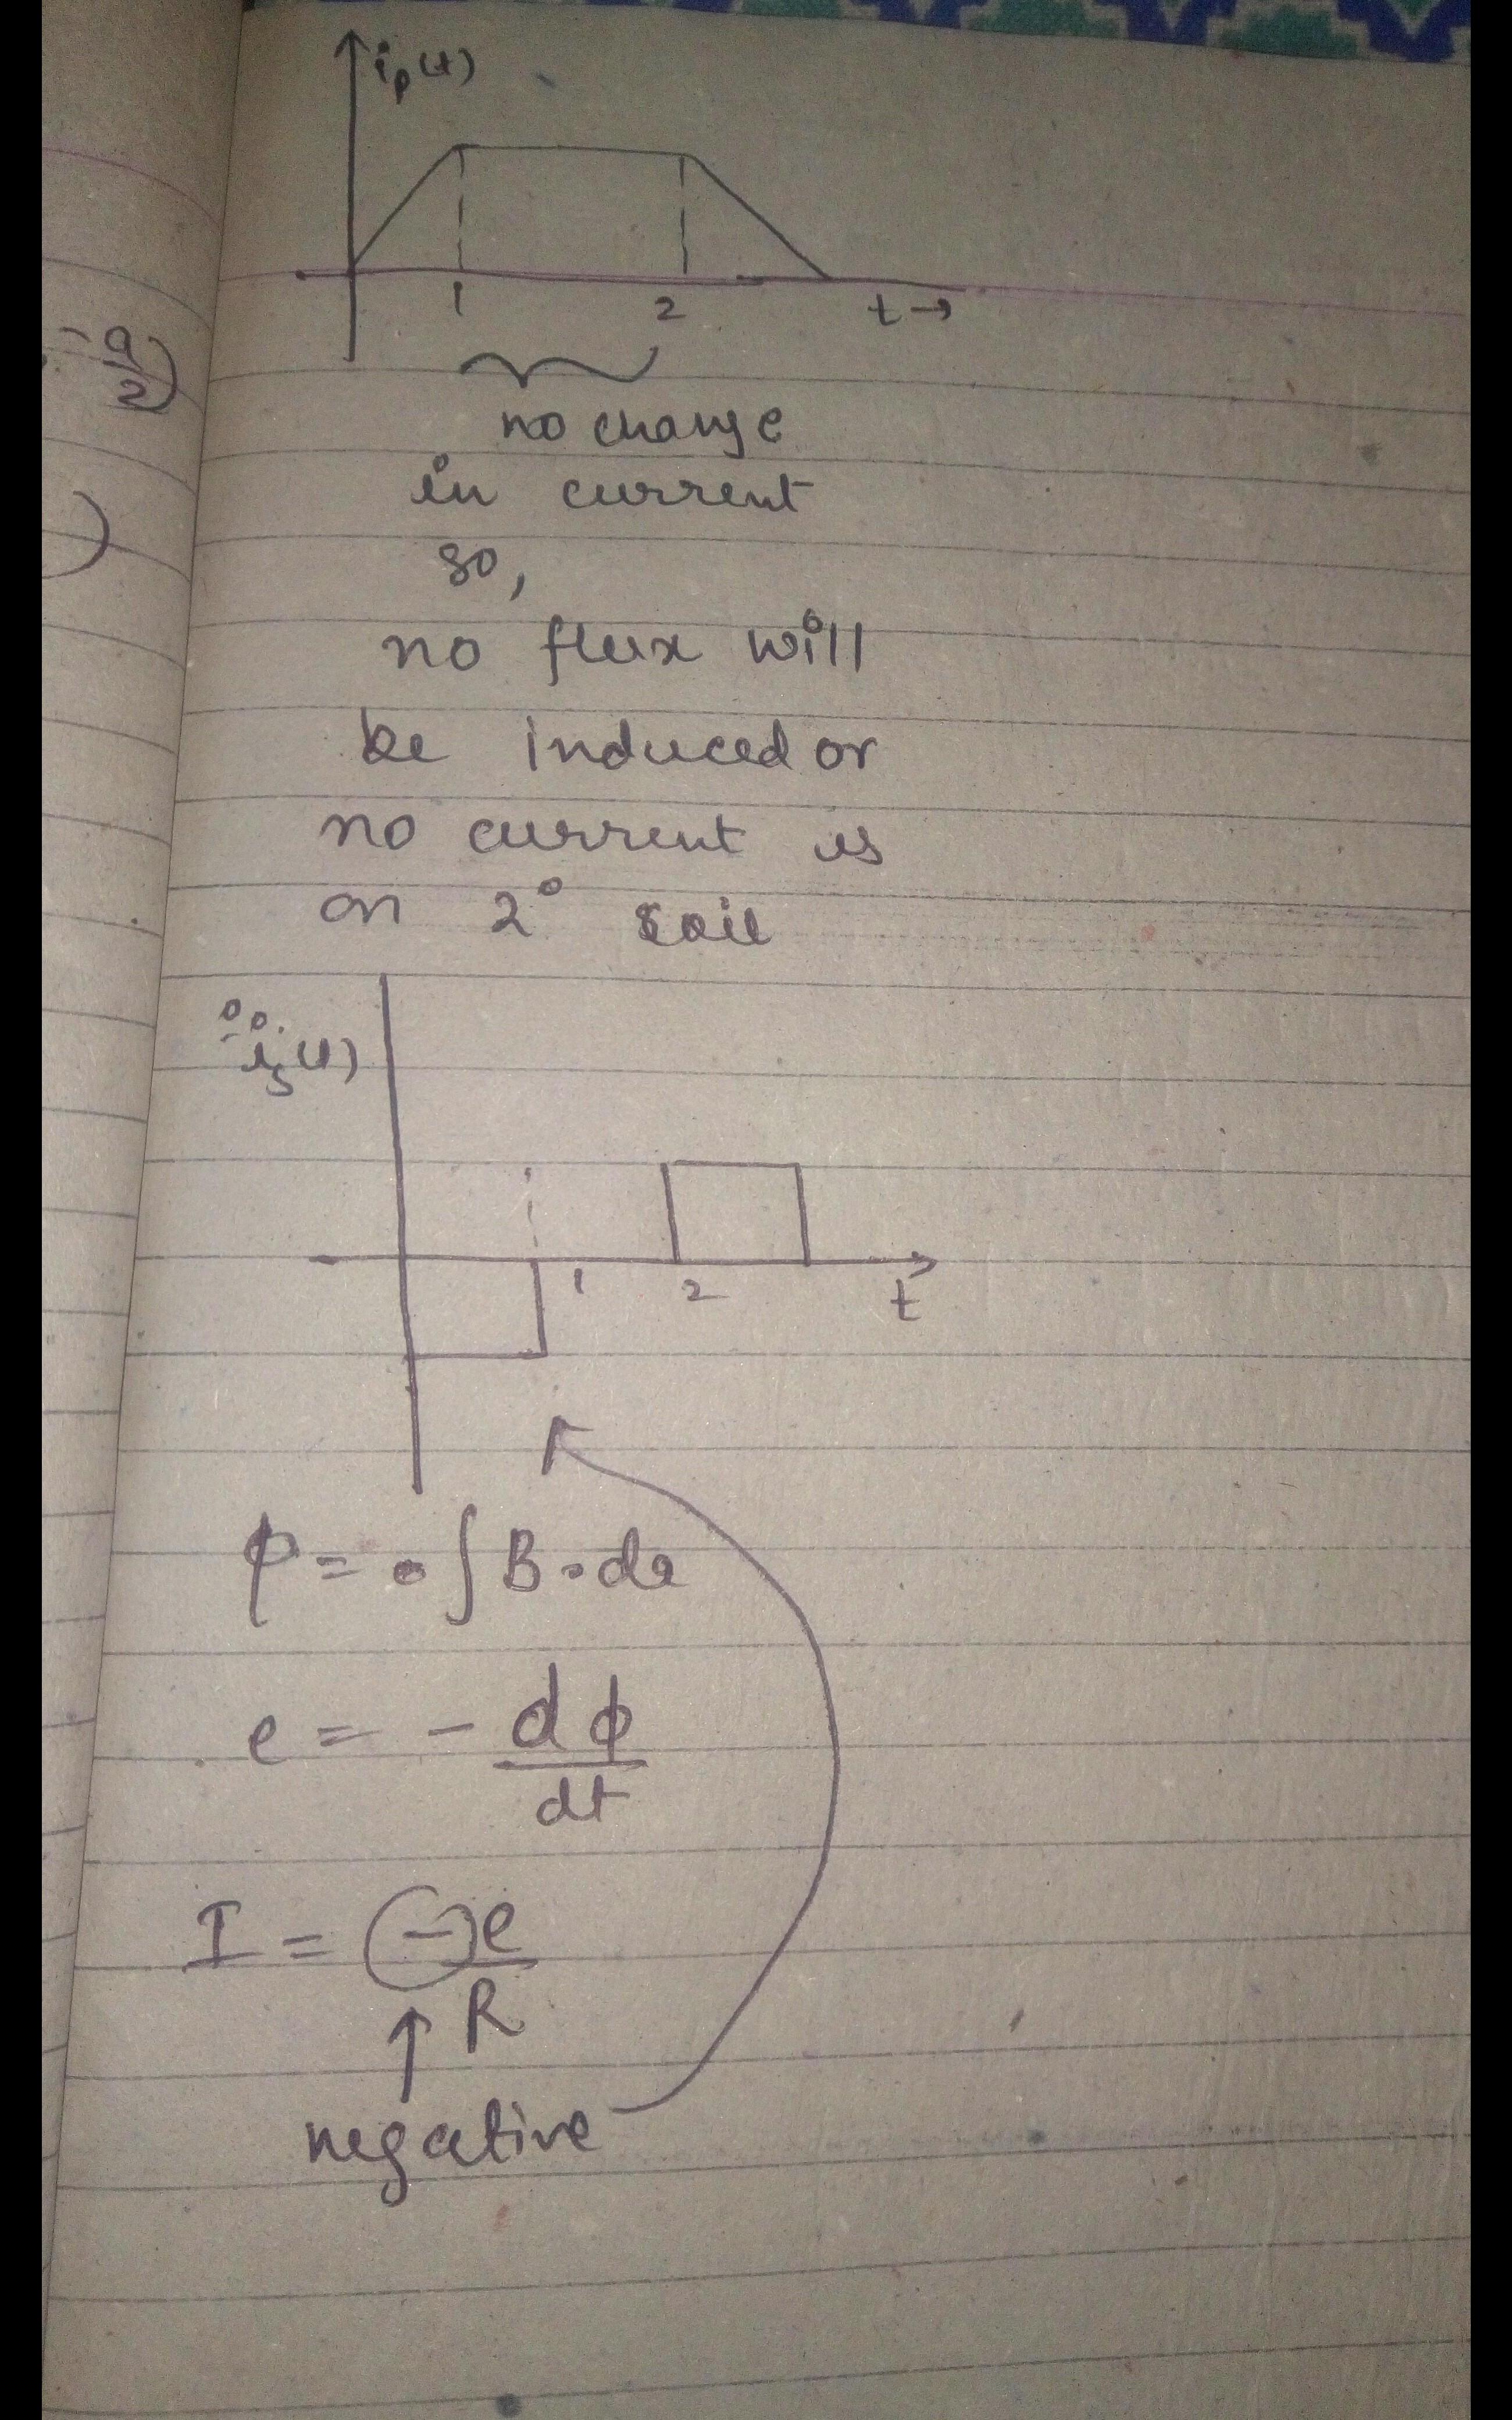 iₚ(t)
1 2 t→
-a/2)
)
no change
in current
so,
no flux will
be induced or
no current is
on 2° coil
iₛ(t)
1 2 t
ϕ = ∫B·da
e = - dϕ/dt
I = (-)e/R
negative